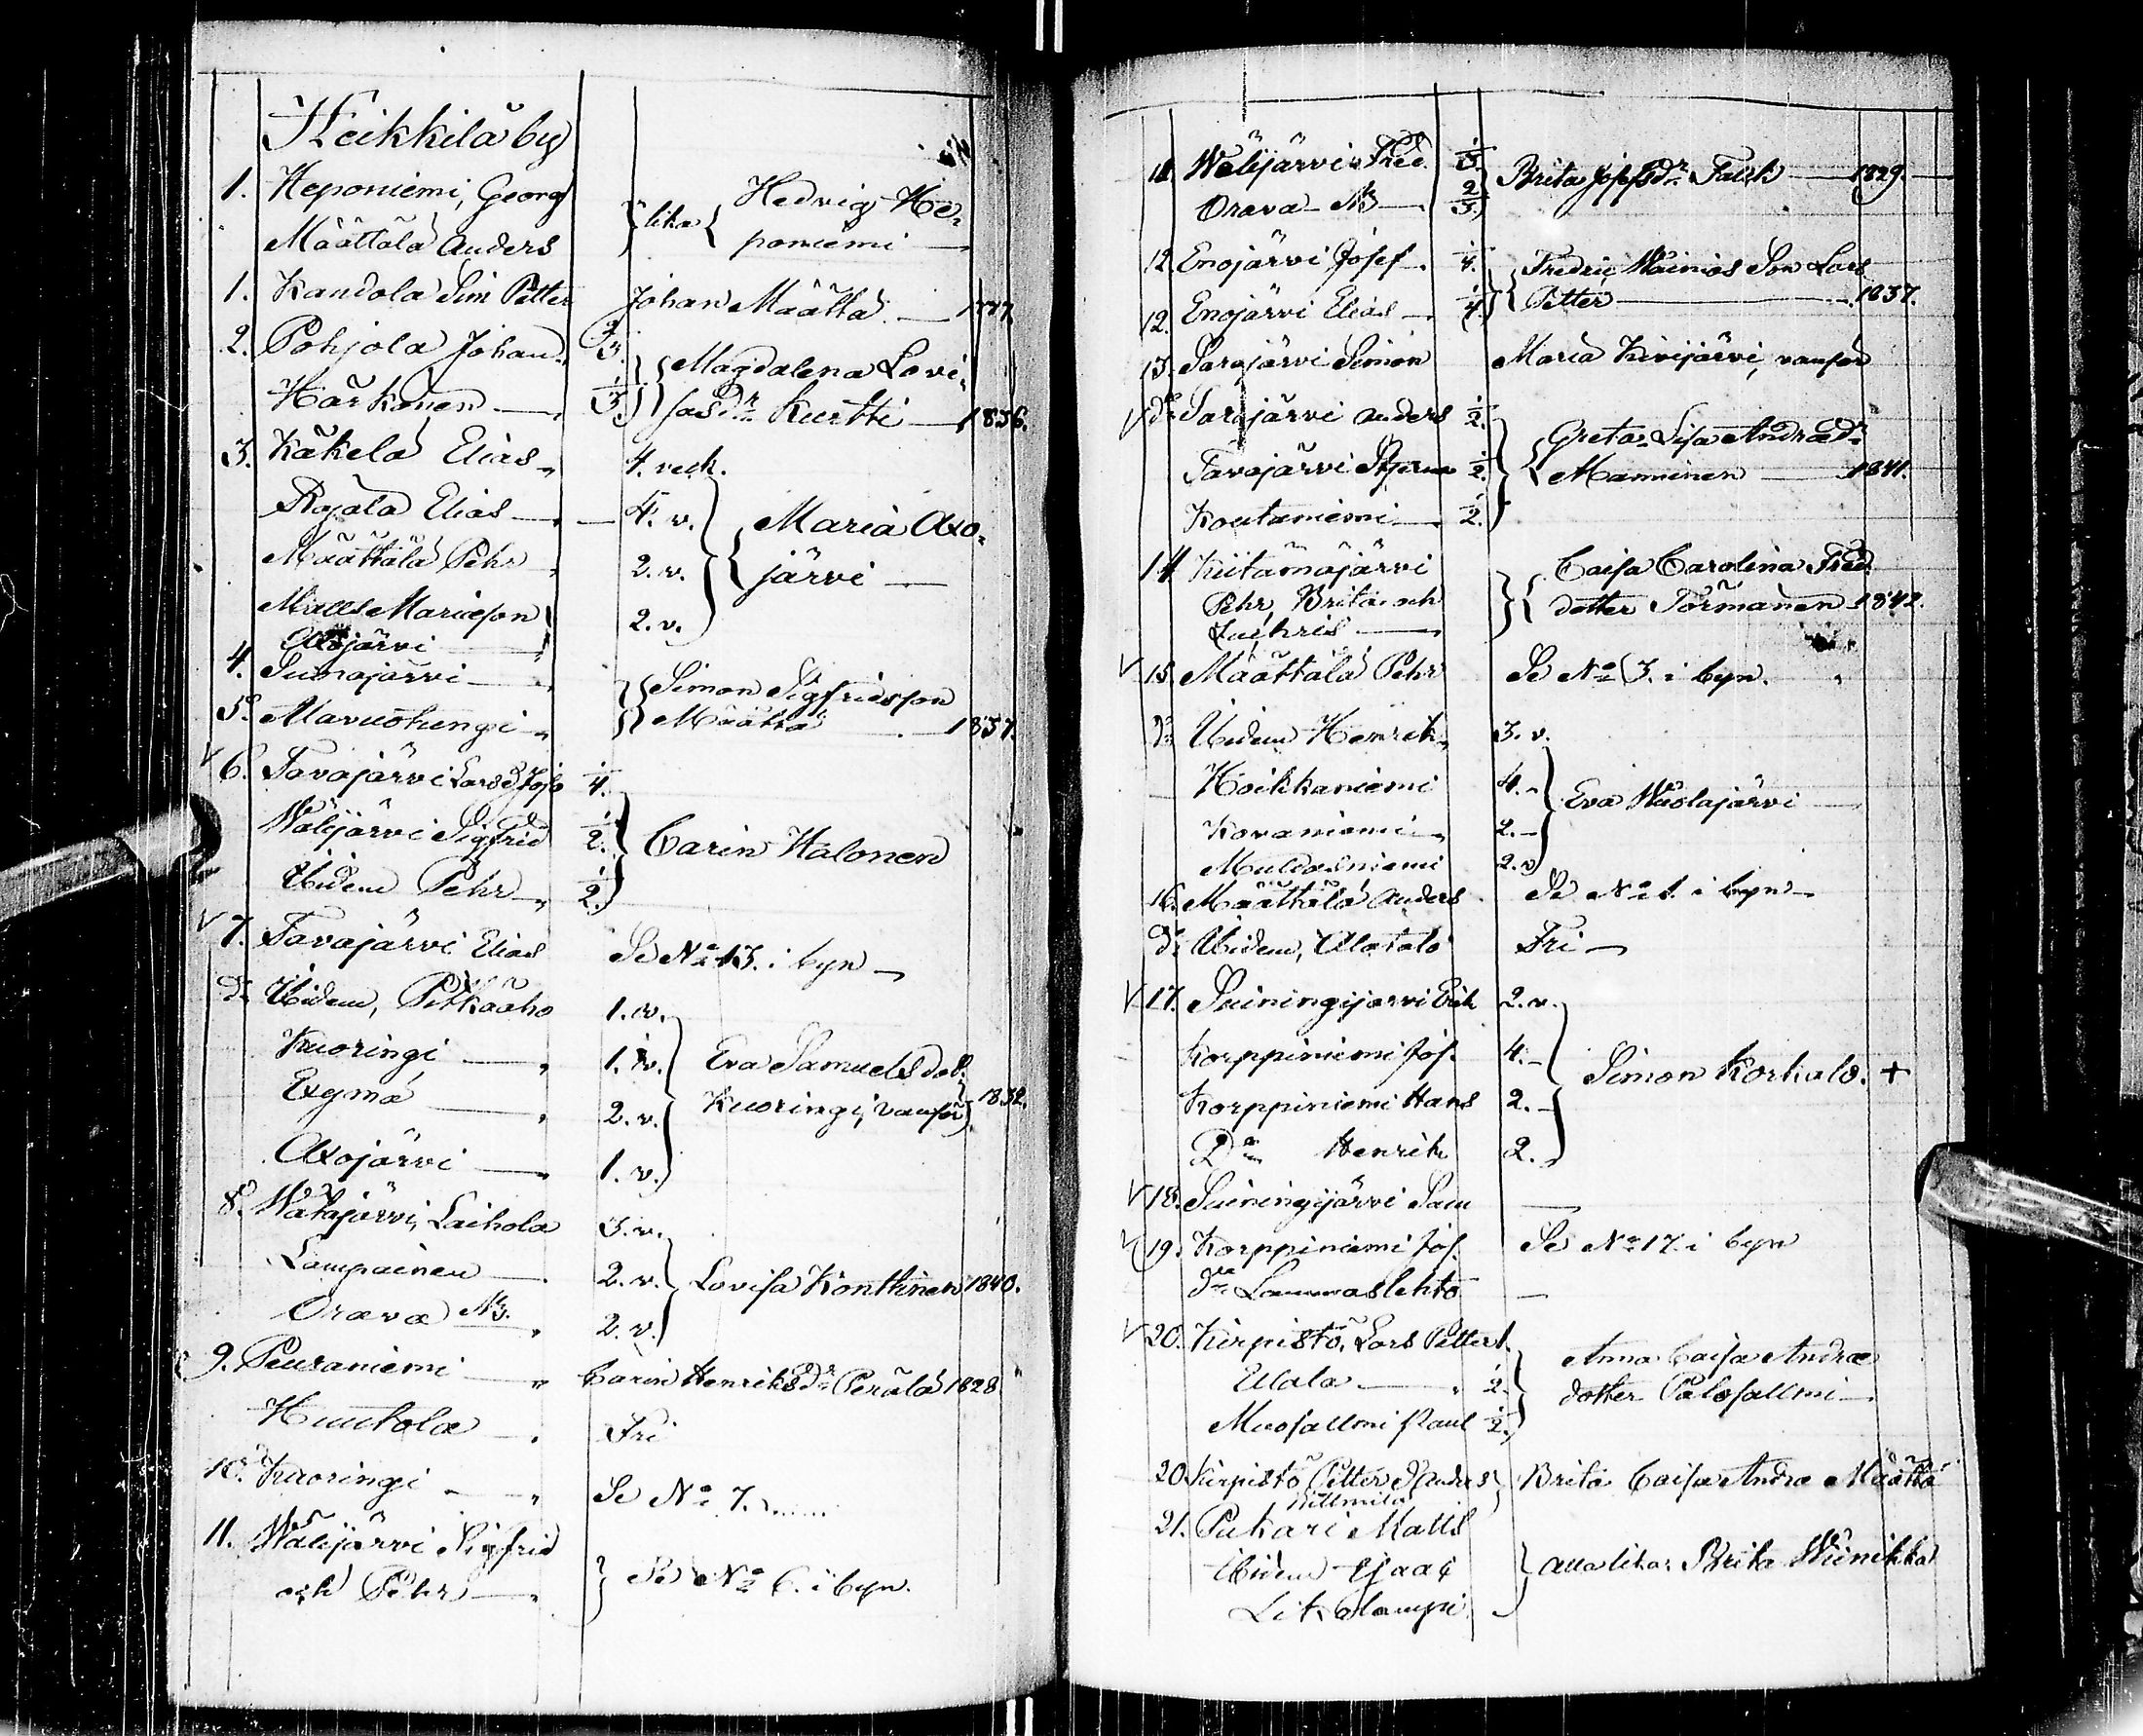 Heikkilä by
1. Heponiemi, Georg } lika { Hedvig He-
Määttälä Anders poniemi —
1. Kandola Sim Petter Johan Määttä — 1777.
2. Pohjola Johan „ 2/3. } { Magdalena Lovi-
Härkönen — „ 1/3. } { sasdr Kurtti — 1836.
3. Käkelä Elias „ 4. veck.
Rajala Elias — „ 4. v. } { Maria Axo-
Määttälä Pehr „ 2. v. } { järvi —
Matts Mariæson 2. v. }
Axojärvi — „
4. Suonajärvi — „ } { Simon Sigfridsson
5. Mavuotungi „ } { Määttä — 1837.
V 6. Tavajärvi Lars d. Joso 1/4.
Wälijärvi Sigfrid 1/2. } Carin Halonen
Ibidem Pehr „ 1/2. }
V 7. Tavajärvi Elias Se No 13. i byn —
do Ibidem, Pitkäaho 1. v.
Kuoringi — „ 1. v. } Eva Samuelsdot.
Exymä — „ 2. v. } Kuoringi, vanför } 1832.
Axojärvi — „ 1. v. }
8. Watajärvi, Laihola 3. v.
Lampainen — „ 2. v. } Lovisa Konttinen 1840.
Orava N3. „ 2. v. }
9. Peuraniemi — „ Carin Henriksdr Perälä 1828
Huutola — „ Fri
10. Kuoringi — „ Se No 7.
11. Wälijärvi Sigfrid } Se No 6. i byn.
och Pehr — „ }
11. Wälijärvi Fred. 1/3. } Brita Josefsdr Falck — 1829.
Orava N3 — 2/3. }
12. Enojärvi Josef. 1/4. } { Fredric Wäinios Son Lars
12. Enojärvi Elias — 1/4. } { Petter — 1837.
13. Sarajärvi Simon Maria Kivijärvi, vanför
V do Sarajärvi Anders 1/2. } { Greta Lisa Andræd r
Tavajärvi 1/2. } { Manninen — 1841.
Koutaniemi — 1/2. }
14 Kiitämäjärvi } { Caisa Carolina Fred.
Pehr, Brita och } { dotter Törmänen 1842.
V 15. Määttälä Pehr Se No 3. i byn.
do Ibidem Henrik „ 3. v.
Hoikkaniemi 4. „ } Eva Wuolajärvi —
Kovaniemi „ 2. — }
Multasniemi 2. v }
16. Määttälä Anders Se No 1. i byn —
do Ibidem, Alatalo Fri —
V 17. Suiningijärvi Erik 2. v.
Korppiniemi Jos. 4. — } Simon Korkalo. +
Korppiniemi Hans 2. — }
Do Henrik 2. „ }
V 18. Suiningijärvi Sam —
V 19. Korppiniemi Jos. Se No 17. i byn
do Lammaslehto —
V 20. Kirpistö, Lars Petter 1. } Anna Caisa Andræ
Ulala — „ 1/2. } dotter Palosallmi —
Muosallmi Paul 1/2. }
20. Kirpistö Petter & Anders } Brita Caisa Andræ Määttä
21. Pukari Matts
Ibidem Isaac } alla lika: Brita Wiinikka
Likolampi }